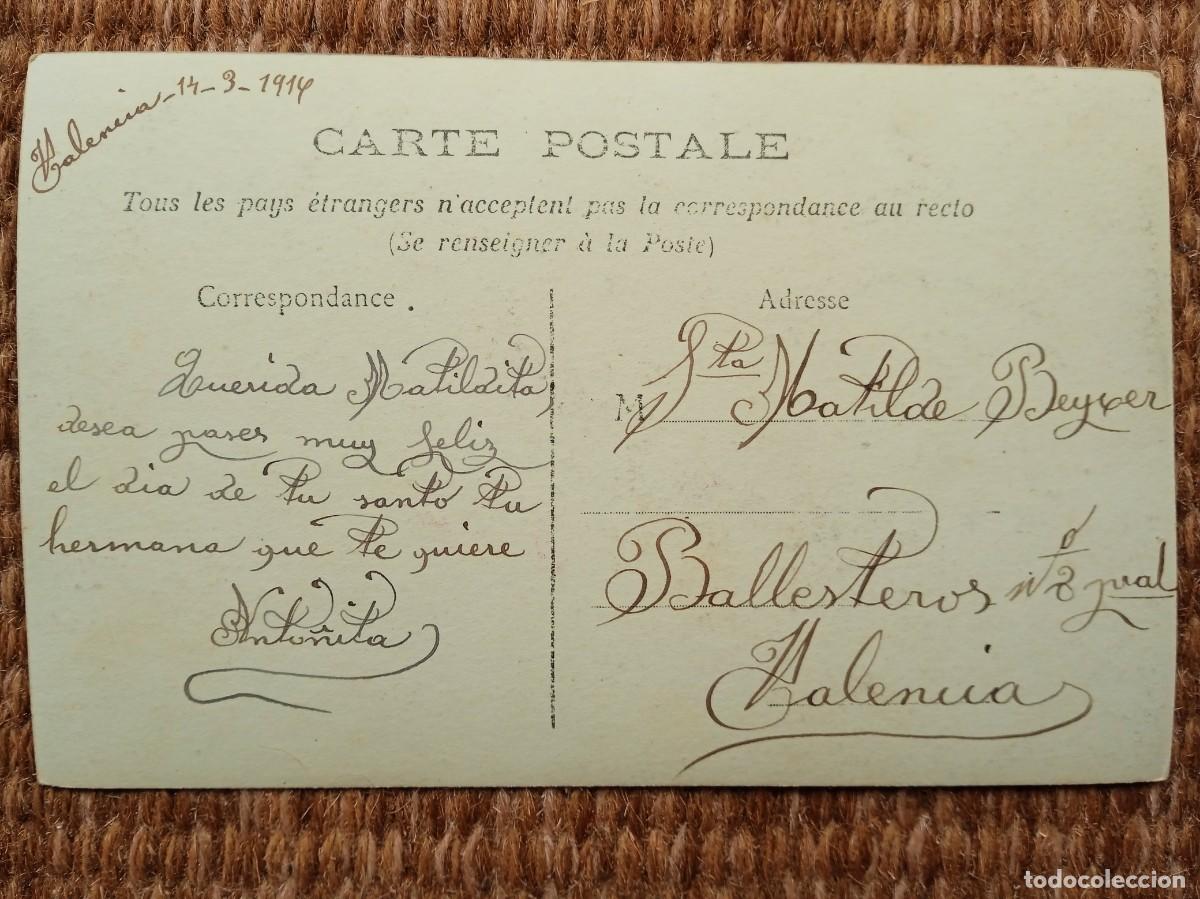 Valencia-14-3-1914
CARTE POSTALE
Tous les pays étrangers n'acceptent pas la correspondance au recto
(Se renseigner à la Poste)
Correspondance.
Querida Matildita
desea pases muy feliz
el dia de tu santo tu
hermana que te quiere
Antoñita
Adresse
M Sta Matilde Beyxer
Ballesteros nº 8 pral
Valencia
todocoleccion